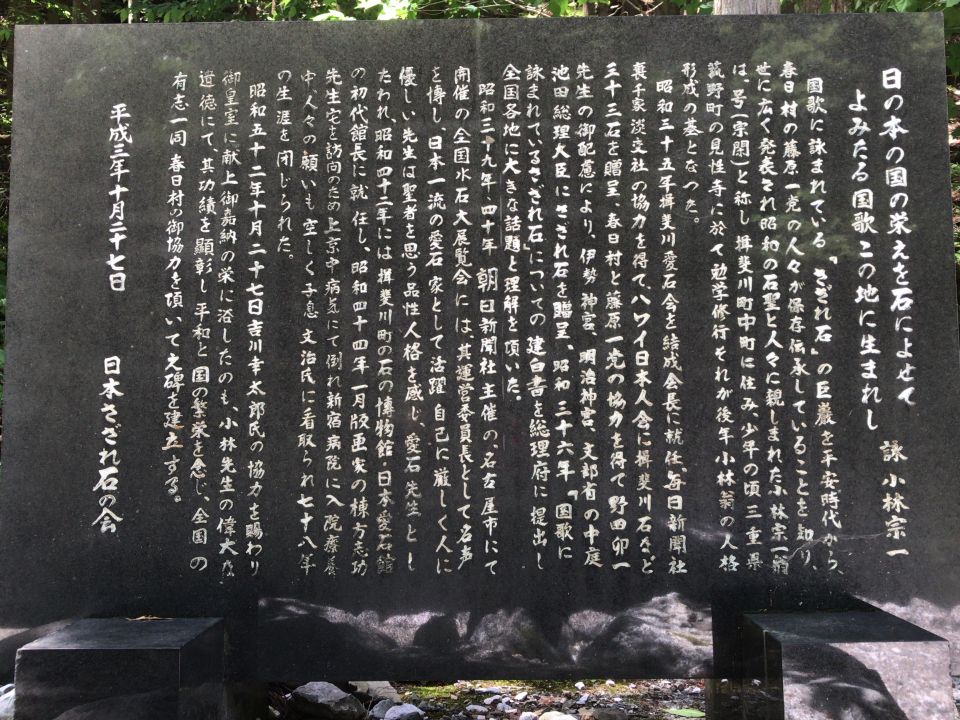 日の本の国の栄えを石によせて
よみたる国歌この地に生まれし
詠 小林宗一
国歌に詠まれている「さざれ石」の巨巌を平安時代から、
春日村の藤原一党の人々が保存伝承していることを知り、
世に広く発表され昭和の石聖と人々に親しまれた小林宗一翁
は、号(宗閑)と称し揖斐川町中町に住み、少年の頃三重県
菰野町の見性寺に於て勉学修行それが後年小林翁の人格
形成の基となった。
昭和三十五年揖斐川愛石会を結成会長に就任、毎日新聞社
裏千家淡交社の協力を得て、ハワイ日本人会に揖斐川石など
三十三石を贈呈、春日村と藤原一党の協力を得て野田卯一
先生の御配慮により、伊勢神宮、明治神宮、文部省の中庭
池田総理大臣にさざれ石を贈呈、昭和三十六年「国歌に
詠まれているさざれ石」についての建白書を総理府に提出し
全国各地に大きな話題と理解を頂いた。
昭和三十九年、四十年朝日新聞社主催の、名古屋市にて
開催の全国水石大展覧会には、其運営委員長として名声
を博し、日本一流の愛石家として活躍自己に厳しく人に
優しい先生は聖者を思う品性人格を感じ、愛石先生とし
たわれ、昭和四十二年には揖斐川町の石の博物館・日本愛石館
の初代館長に就任し、昭和四十四年一月版画家の棟方志功
先生宅を訪問のため上京中病気にて倒れ新宿病院に入院療養
中、人々の願いも空しく子息文治氏に看取られ七十八年
の生涯を閉じられた。
昭和五十二年十月二十七日吉川幸太郎氏の協力を賜わり
御皇室に献上御嘉納の栄に浴したのも、小林先生の偉大な
遺徳にて、其功績を顕彰し平和と国の繁栄を念じ、全国の
有志一同春日村の御協力を頂いて之碑を建立する。
平成三年十月二十七日
日本さざれ石の会